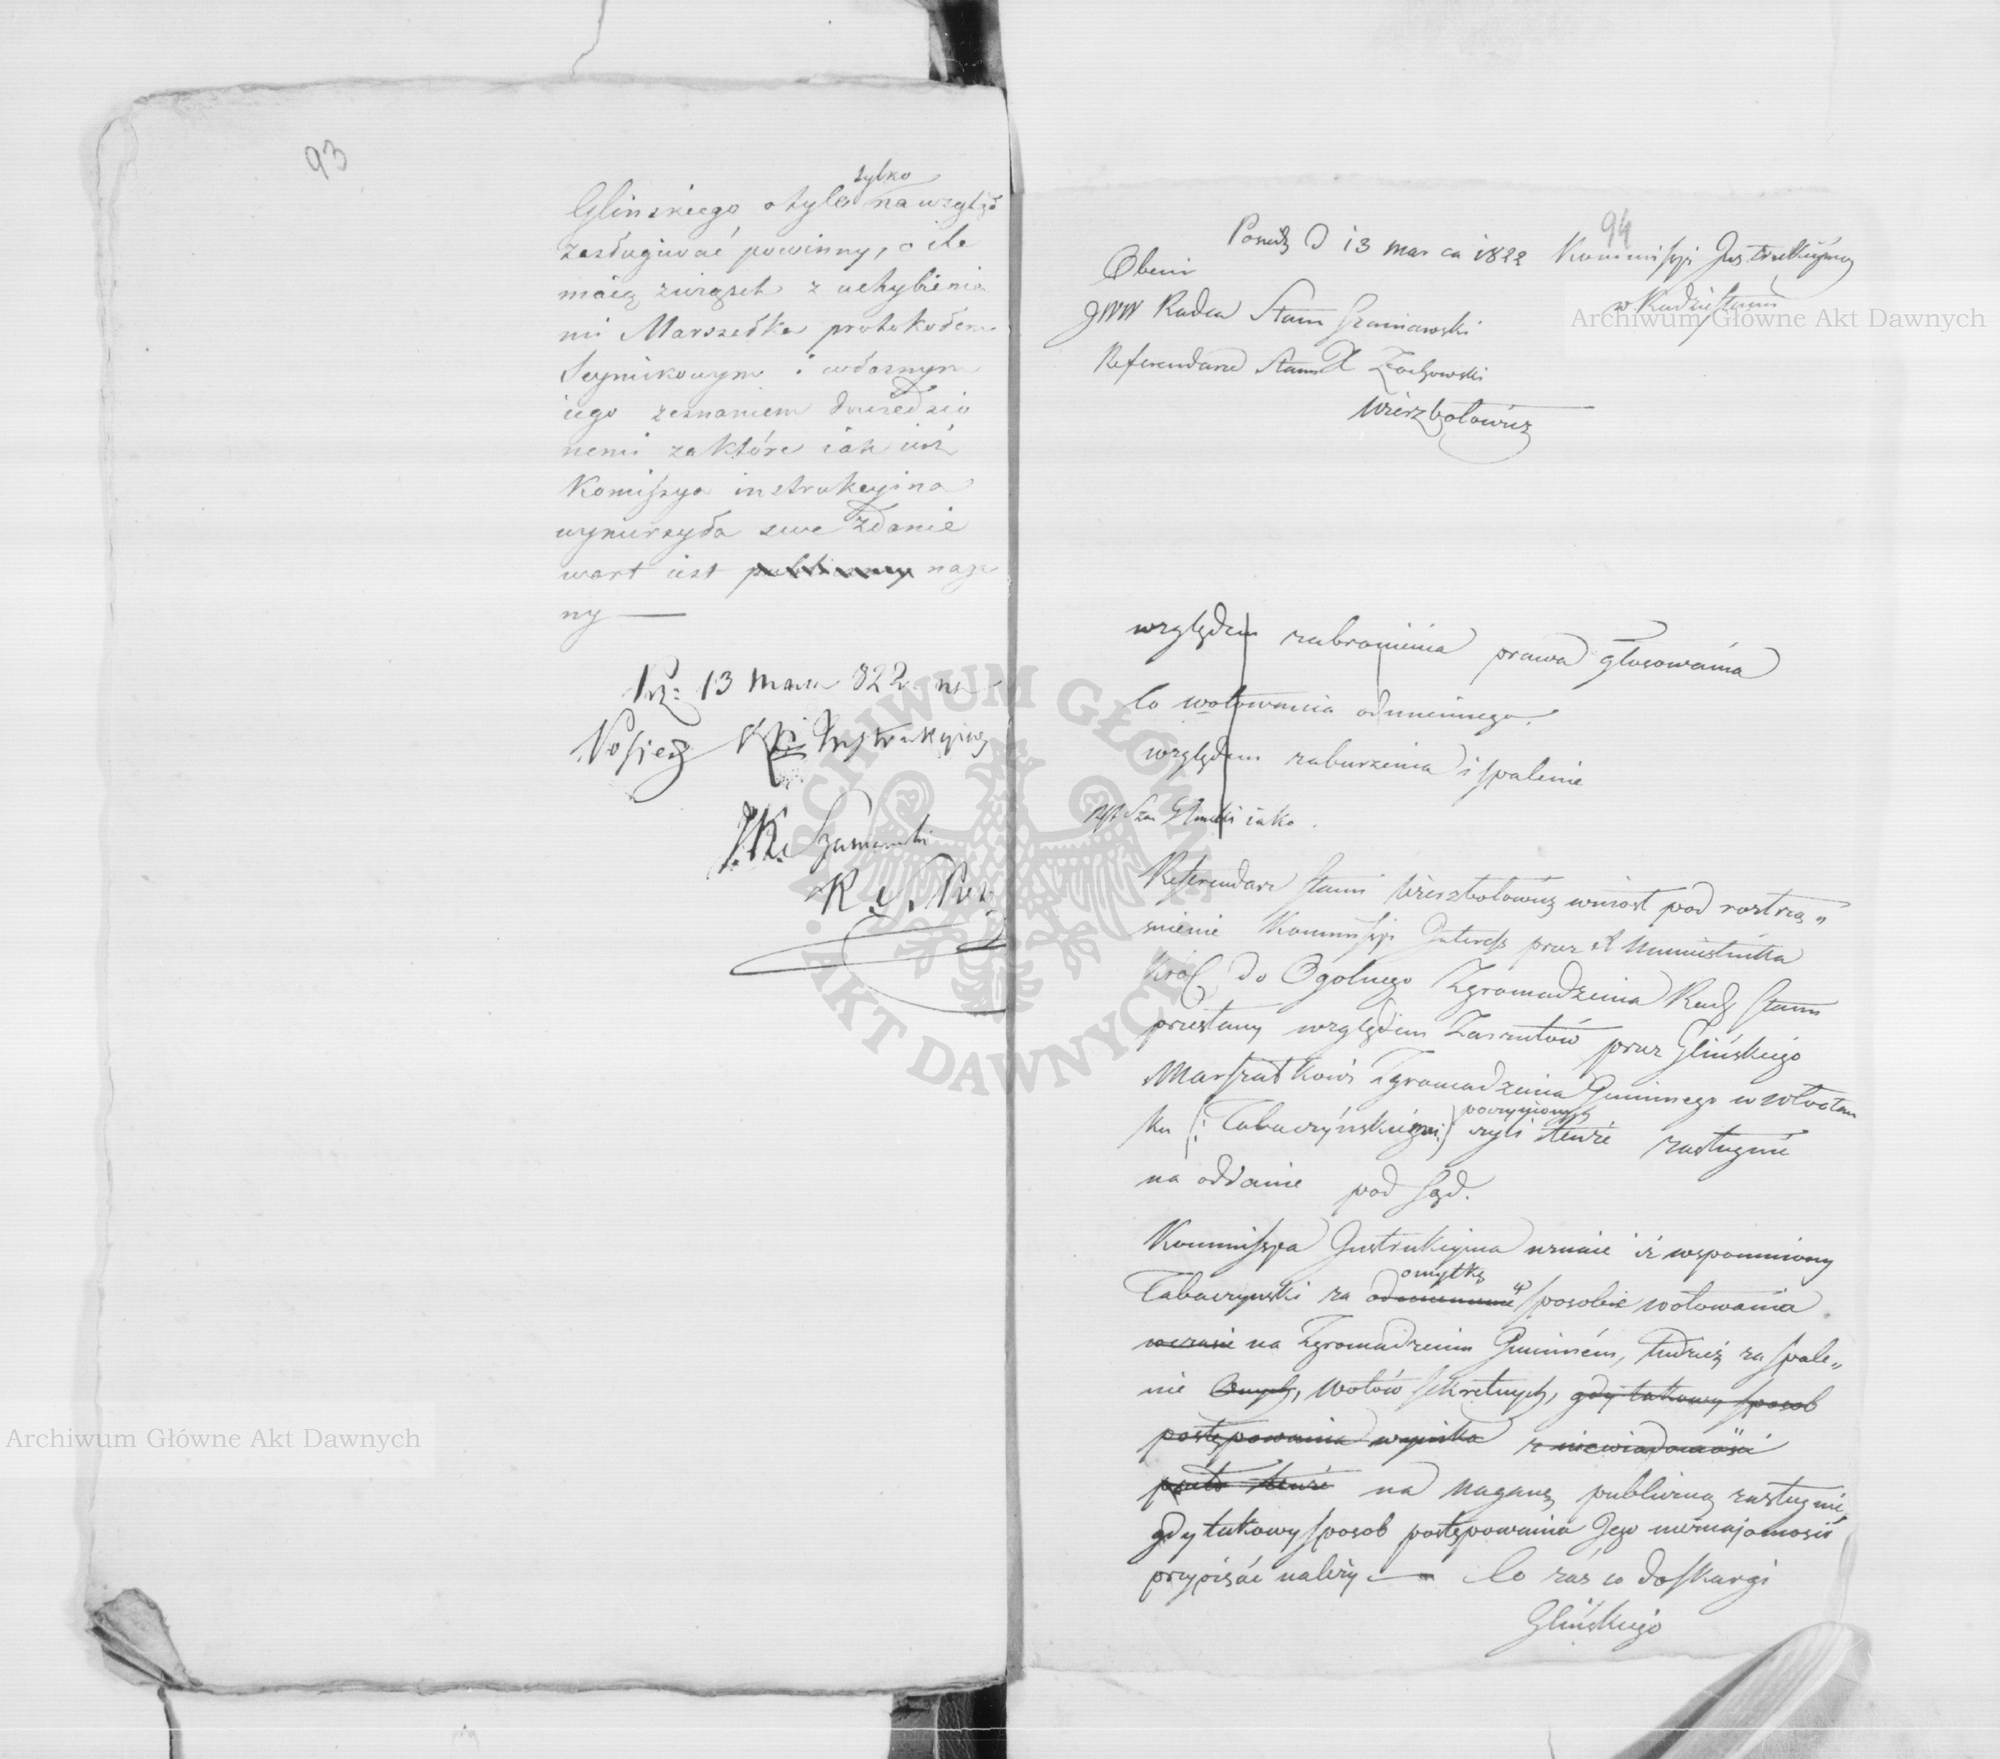 93
Glinskiego o tyle tylko na wzgląd
zasługiwać powinny, o ile
maią związek z uchybienia
mi Marszałka protokołem
Seymikowym i własnym
iego zeznaniem dowiedzio
nemi za które iak iuż
Komissya instrukcyina
wynurzyła swe zdanie
wart iest publiczney naga
ny —
13 Marca 822 na
Posiedz Instrukcyiney
J. K. Szaniawski
94
Posiedz D 13 marca 1822 Kommissyi Instrukcyiney
w Radzie Stanu
Obecni
JWW Radca Stanu Szaniawski
Referendarze Stanu X Żochowski
Wierzbołowicz
względem zabronienia prawa głosowania
Co wotowania odmiennego.
względem zaburzenia i spalenie
Gliński iako.
Referendarz Stanu Wierzbołowicz wniosł pod roztrzą„
śnienie Kommissyi Interess przez X Namiestnika
Król do Ogolnego Zgromadzenia Rady Stanu
przesłany względem Zarzutów przez Glińskiego
Marszałkowi Zgromadzenia Gminnego w Wloclaw
ku (: Tabaczyńskiemu :) poczynionych czyli tenże zasługuie
na oddanie pod sąd.
Kommissya Instrukcyina uznaie iż wspomniony
Tabaczynski za odmienne omyłkę w sposobie wotowania
w czasie na Zgromadzeniu Gminném, tudzież za spale„
nie Onych, wotów sekretnych, gdy takowy sposob
postępowania wynika z niewiadomości
przeto tenże na naganę publiczną zasługuie,
gdy takowy sposob postępowania Jego nieznajomości
przypisać należy — Co zaś co do skargi
Glińskiego
Archiwum Główne Akt Dawnych
Archiwum Główne Akt Dawnych
ARCHIWUM GŁÓWNE AKT DAWNYCH